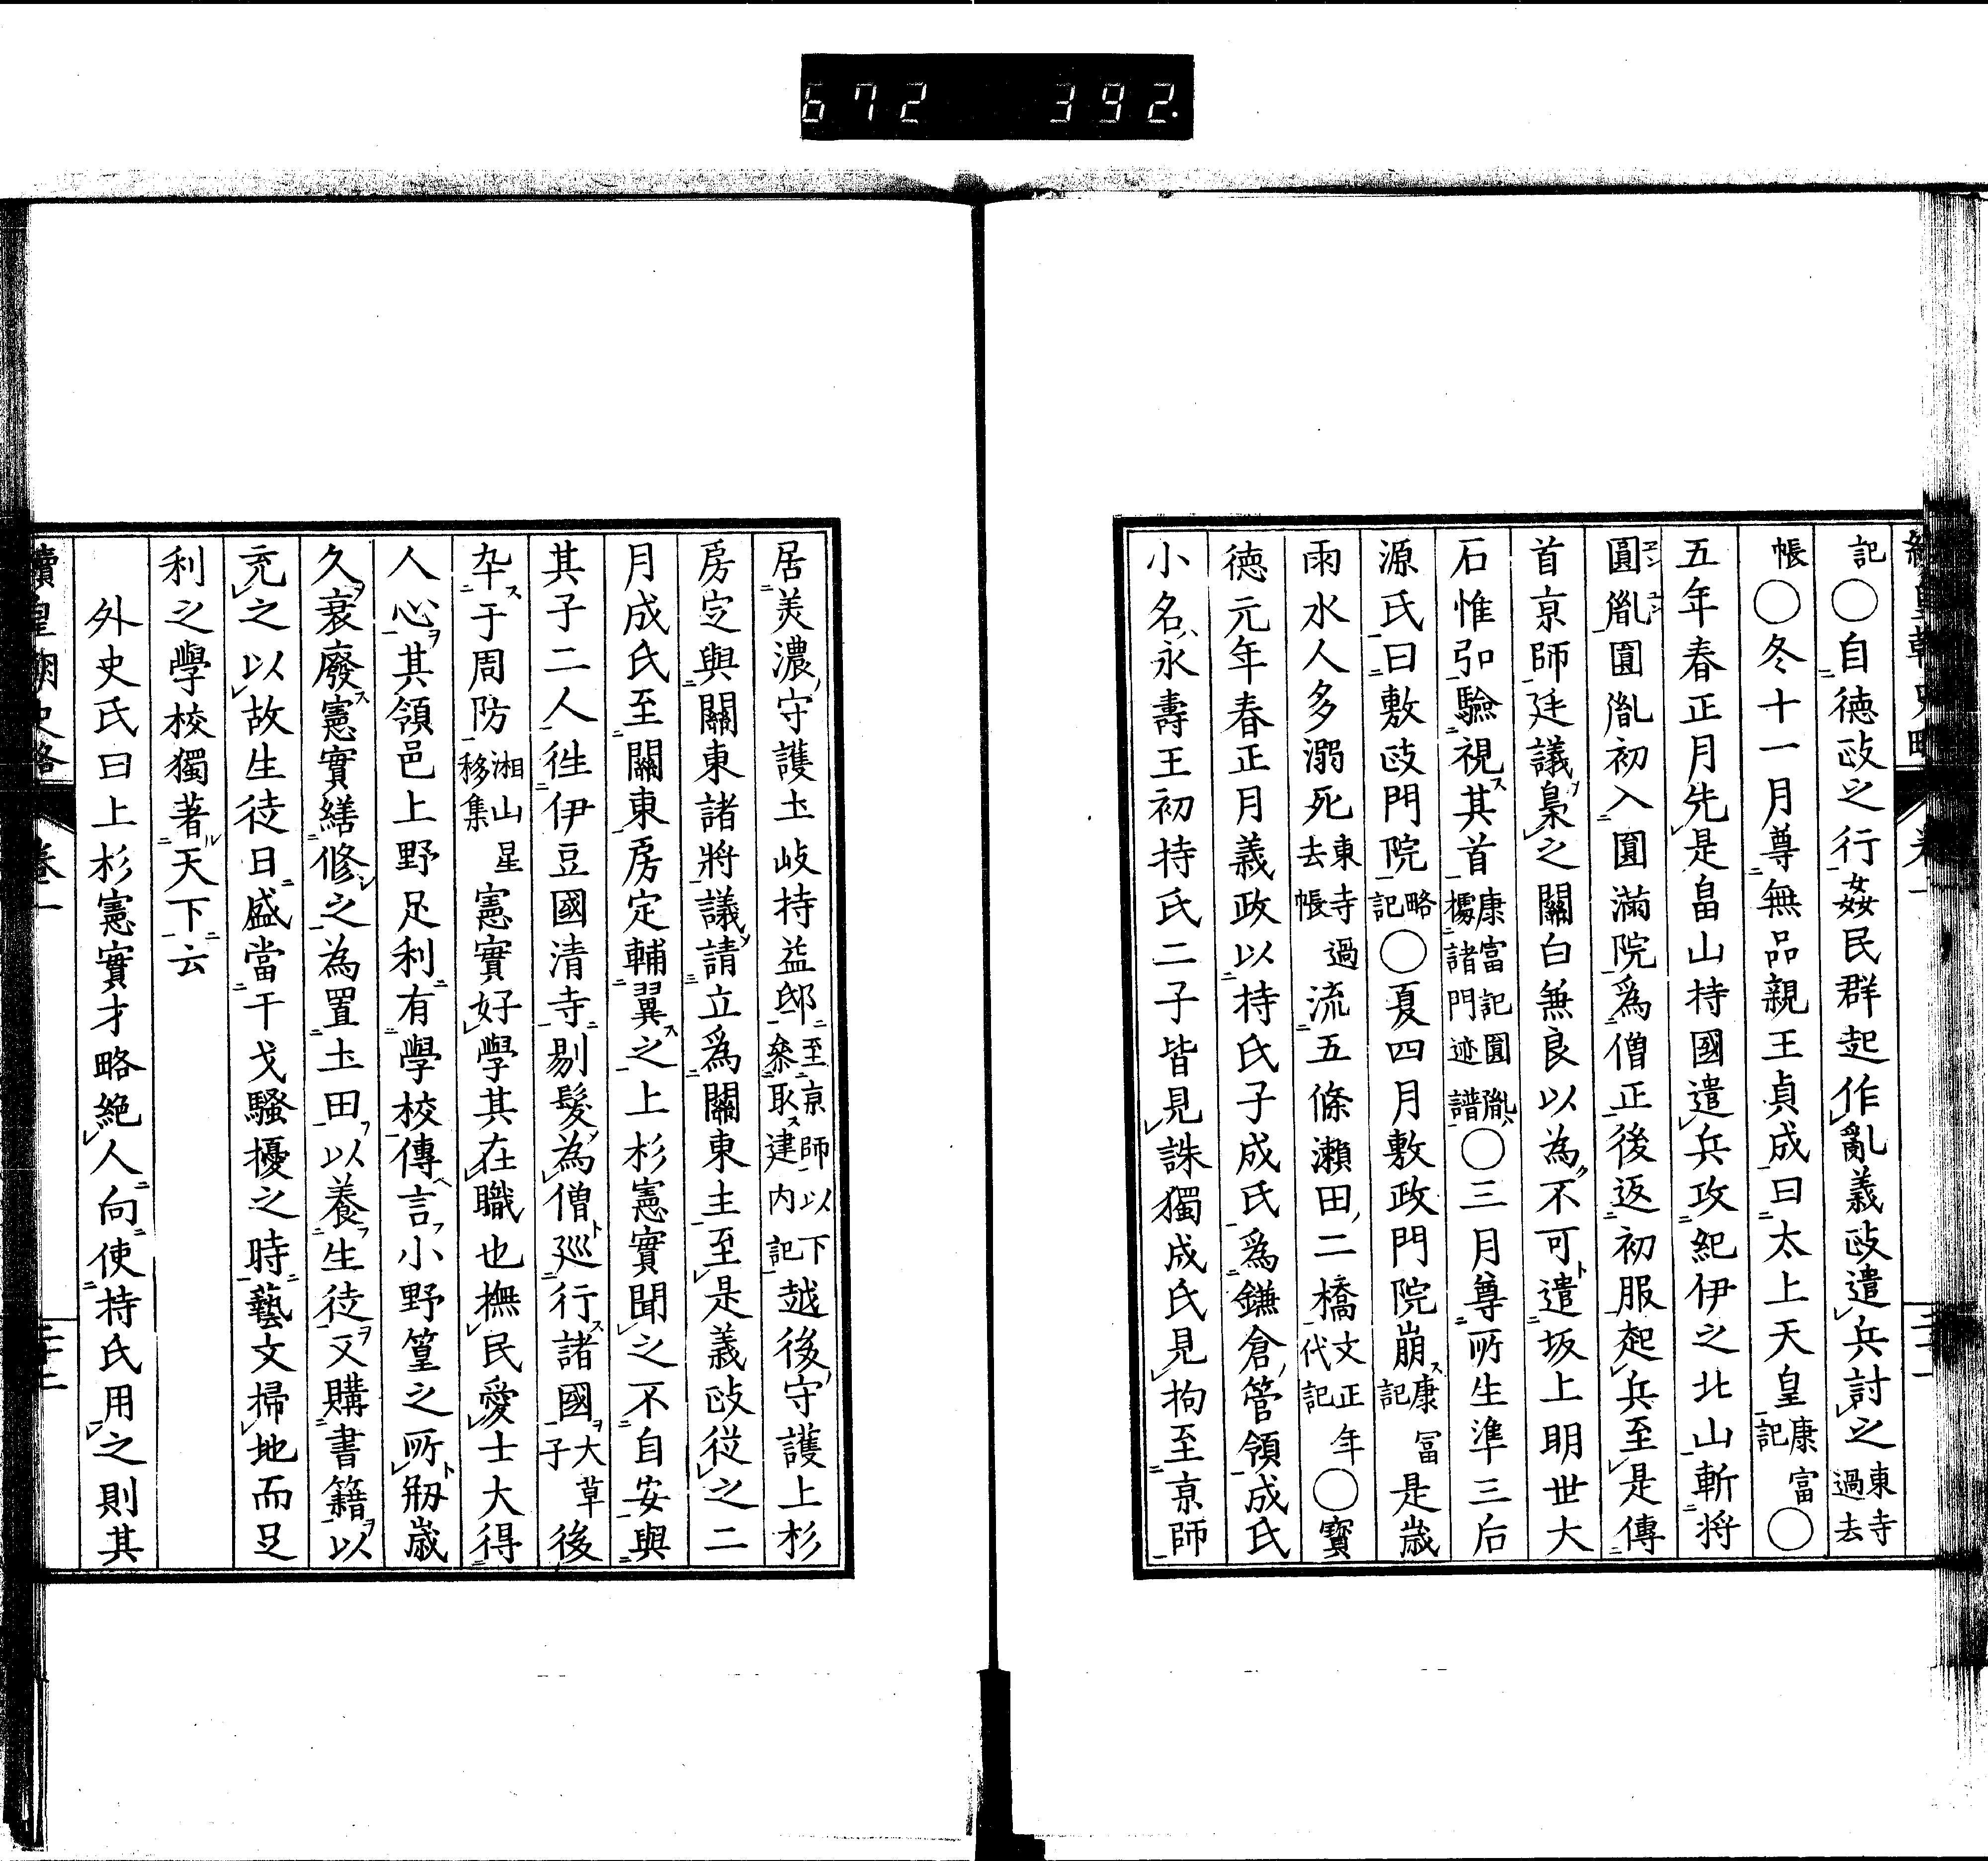 672 392.
記○自徳政之行姦民群起作亂義政遣兵討之東寺過去
帳○冬十一月尊無品親王貞成曰太上天皇康富記○
五年春正月先是畠山持國遣兵攻紀伊之北山斬将
圓胤圓胤初入圓滿院爲僧正後返初服起兵至是傳
首京師廷議梟之關白無良以為不可遣坂上明世大
石惟弘驗視其首康富記圓胤據諸門迹譜○三月尊所生準三后
源氏曰敷政門院略記○夏四月敷政門院崩康富記是歳
雨水人多溺死東寺過去帳流五條瀬田二橋文正年代記○寳
德元年春正月義政以持氏子成氏爲鎌倉管領成氏
小名永壽王初持氏二子皆見誅獨成氏見拘至京師
居美濃守護土岐持益邸至京師以下參取建内記越後守護上杉
房定與關東諸將議請立爲關東主至是義政從之二
月成氏至關東房定輔翼之上杉憲實聞之不自安與
其子二人徃伊豆國清寺剔髮為僧巡行諸國大草子後
卒于周防湘山星移集憲實好學其在職也撫民愛士大得
人心其領邑上野足利有學校傳言小野篁之所剏歳
久衰廢憲實繕修之為置土田以養生徒又購書籍以
充之以故生徒日盛當干戈騷擾之時藝文掃地而足
利之學校獨著天下云
外史氏曰上杉憲實才略絶人向使持氏用之則其
續皇朝史略 卷一